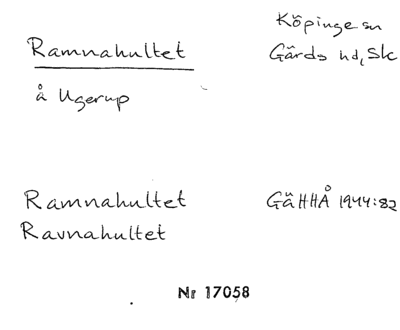 Köpinge sn
Ramnahultet
Gärds hd, Sk
å Ugerup
Ramnahultet GäHHÅ 1944:82
Ravnahultet
Nr 17058